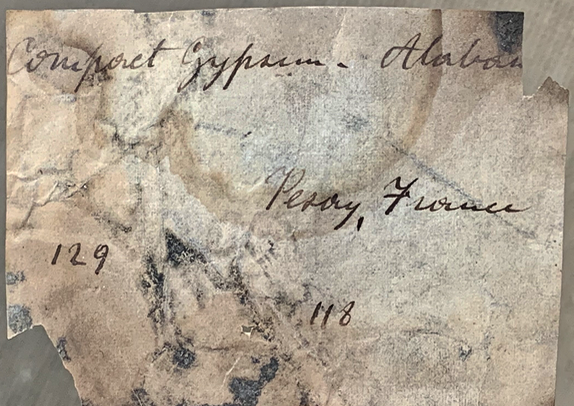 Compact Gypsum - Alabas
Pesay, France
129
118